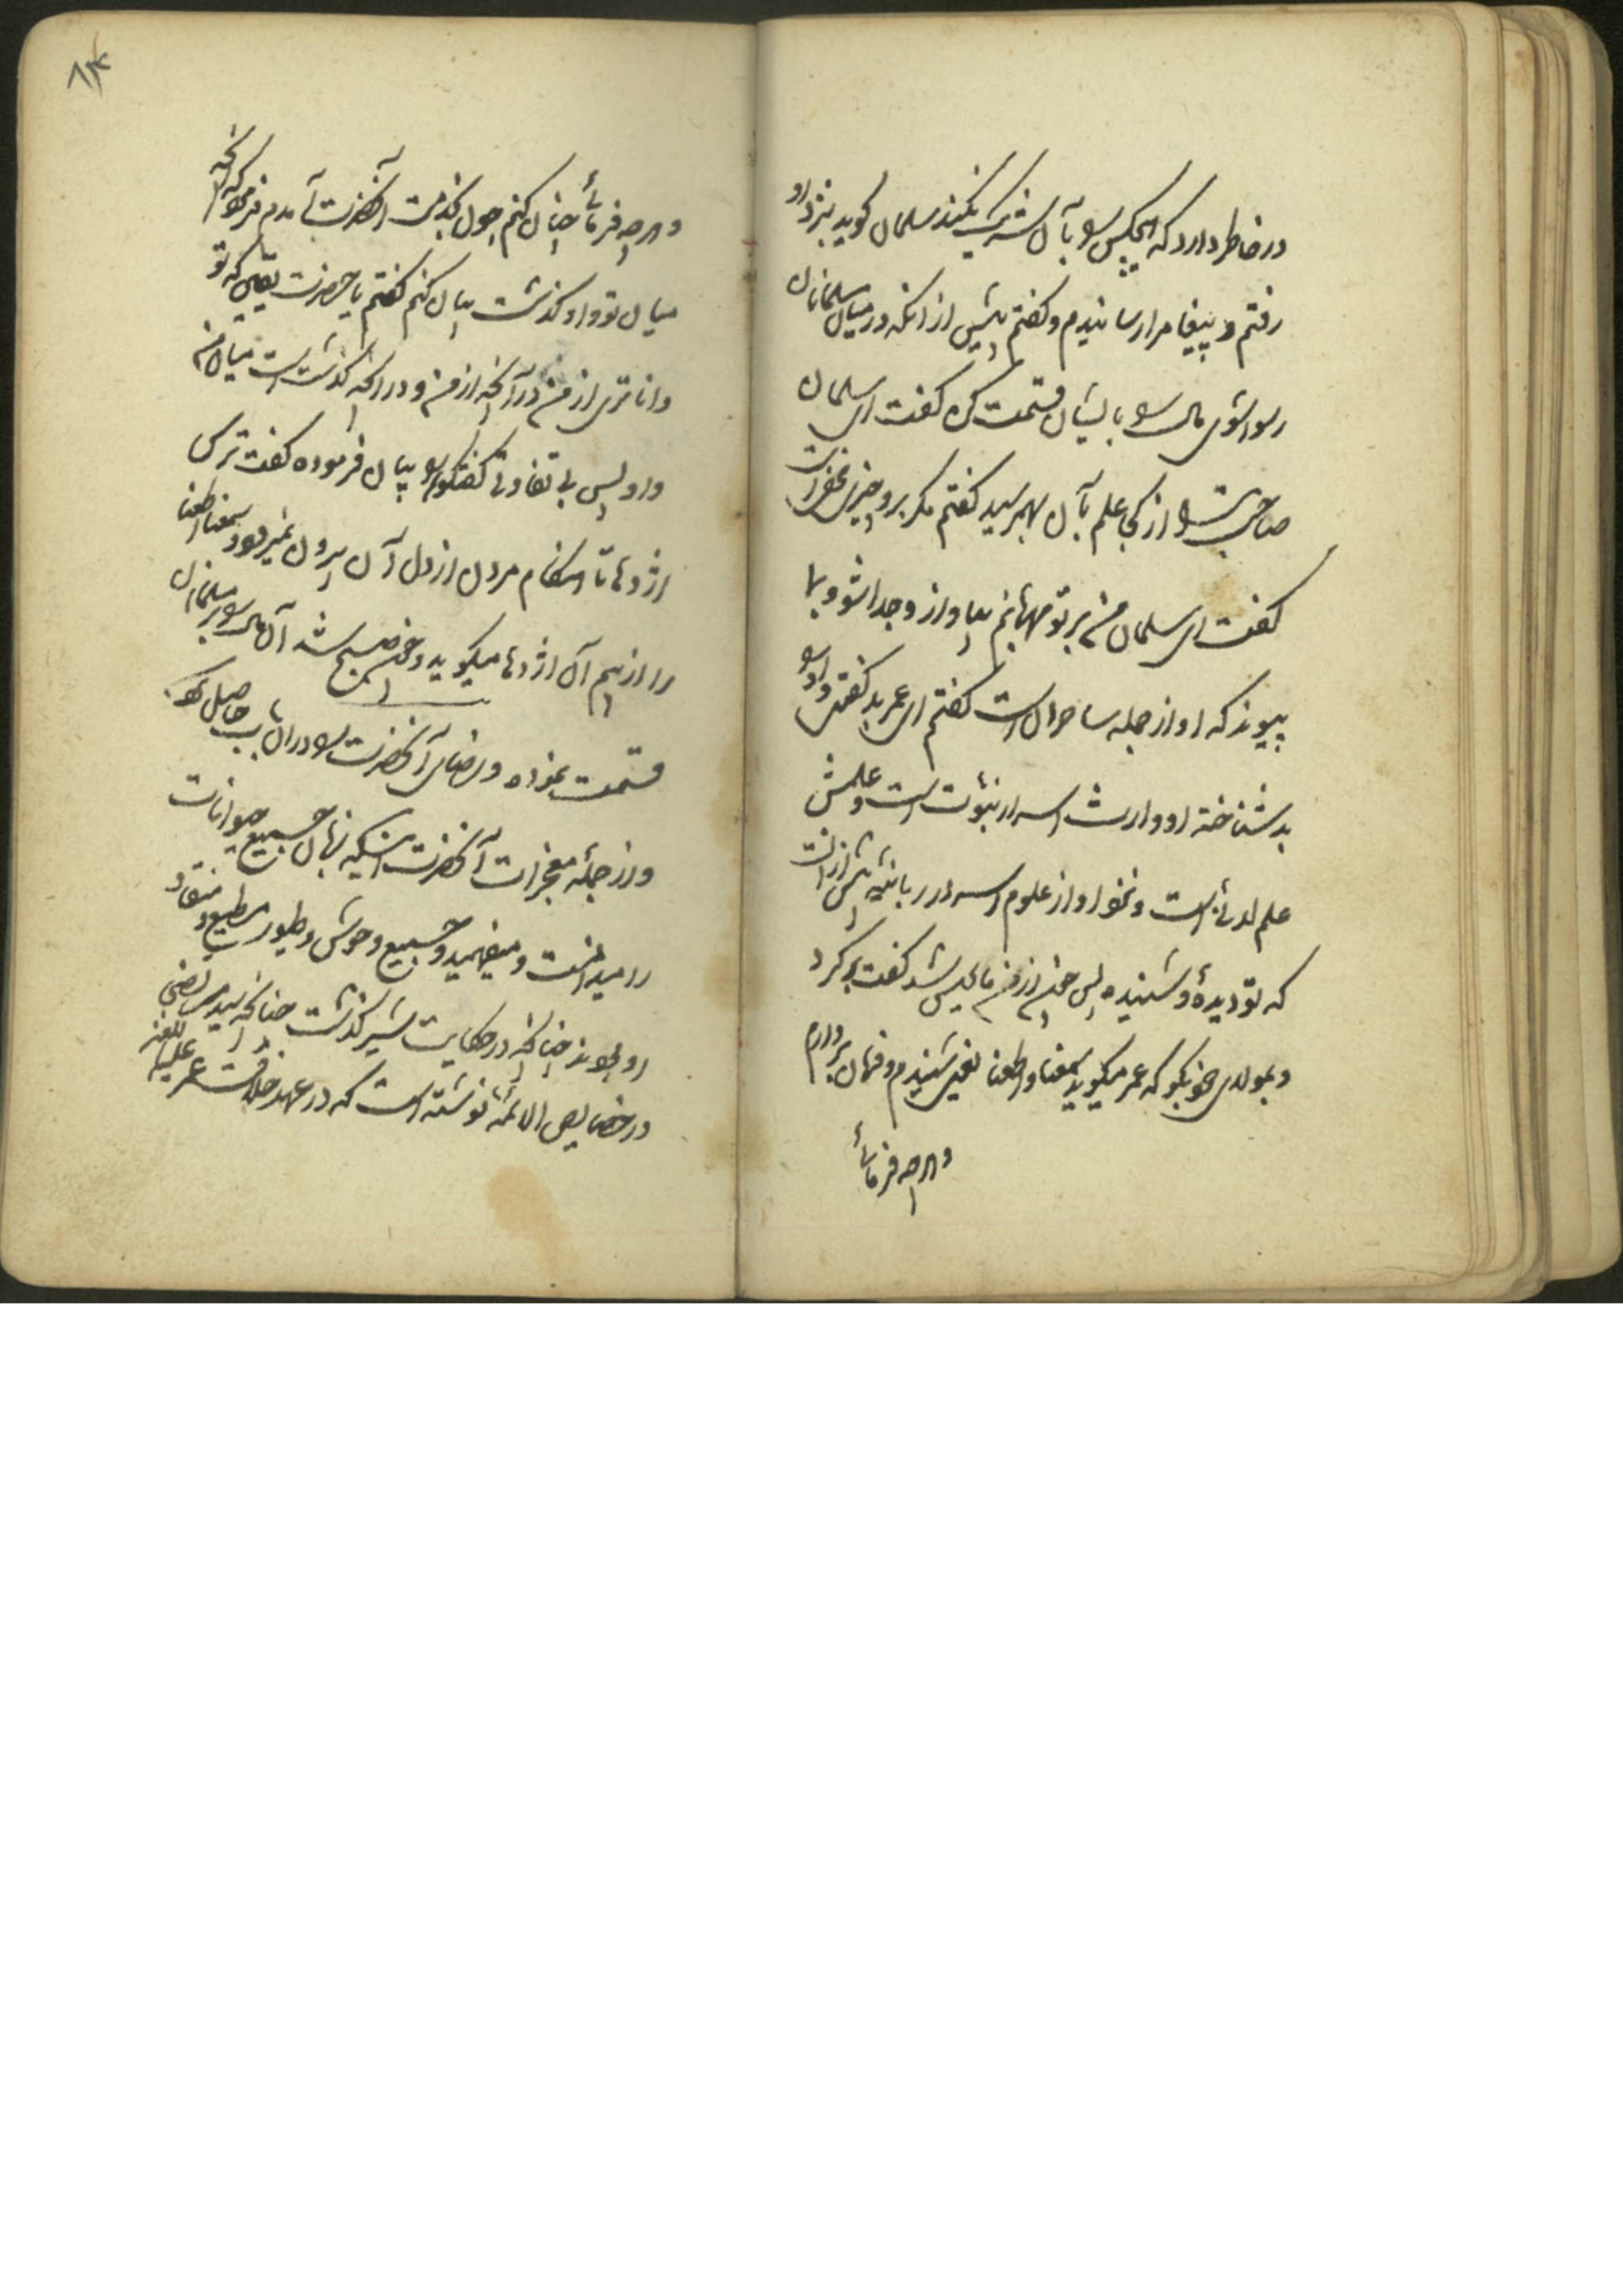 در خاطر دارد که هیچکس را بآن شریک نکند سلمان کوید بنزد او
رفتم و پیغام را رسانیدم و کفتم پیش از انکه در میان مسلمانان
رسوا شوی مال را بایشان قسمت کن کفت ای سلمان
صاحبت را از کجا علم بآن بهم رسید کفتم مکر برو چیزی مخفی است
کفت ای سلمان من بر تو مهربانم بیا و از و جدا شو و بما
پیوند که او از جمله ساحران است کفتم ای عمر بد کفتی و او را
بد شناخته او وارث اسرار نبوت است و علمش
علم لدنی است و نحو او از علوم اسرار ربانیه بیش از انست
که تو دیدۀ و شنیده پس چون از من مایوس شد کفت برکرد
و بمولای خود بکو که عمر میکوید سمعنا و اطعنا یعنی شنیدم و فرمان بردارم
و هرچه فرمائی
۸۴
و هرچه فرمائی چنان کنم چون بخدمت آنحضرت آمدم فرمود که آنچه
میان تو و او کذشت بیان کنم کفتم یا حضرت یقین که تو
داناتری از من در آنچه از من و در آنچه کذشته است میان من
و او پس بی تفاوتی کفتکو را بیان فرموده کفت ترس
اژدها تا هنکام مردن از دل آن بیرون نمیرود و سمعنا و اطعنا
را از بیم آن اژدها میکوید و چون صبح شد آن مال را بر مسلمانان
قسمت نموده و رضای آنحضرت را در ان باب حاصل کرد
و از جمله معجزات آنحضرت اینکه زبان جمیع حیوانات
را میدانست و میفهمید و جمیع وحوش و طیور مطیع و منقاد
او بودند چنانچه در حکایت شیر کذشت چنانچه سید مرتضی
در خصایص الائمه نوشته است که در عهد خلافت عمر علیه اللعنه